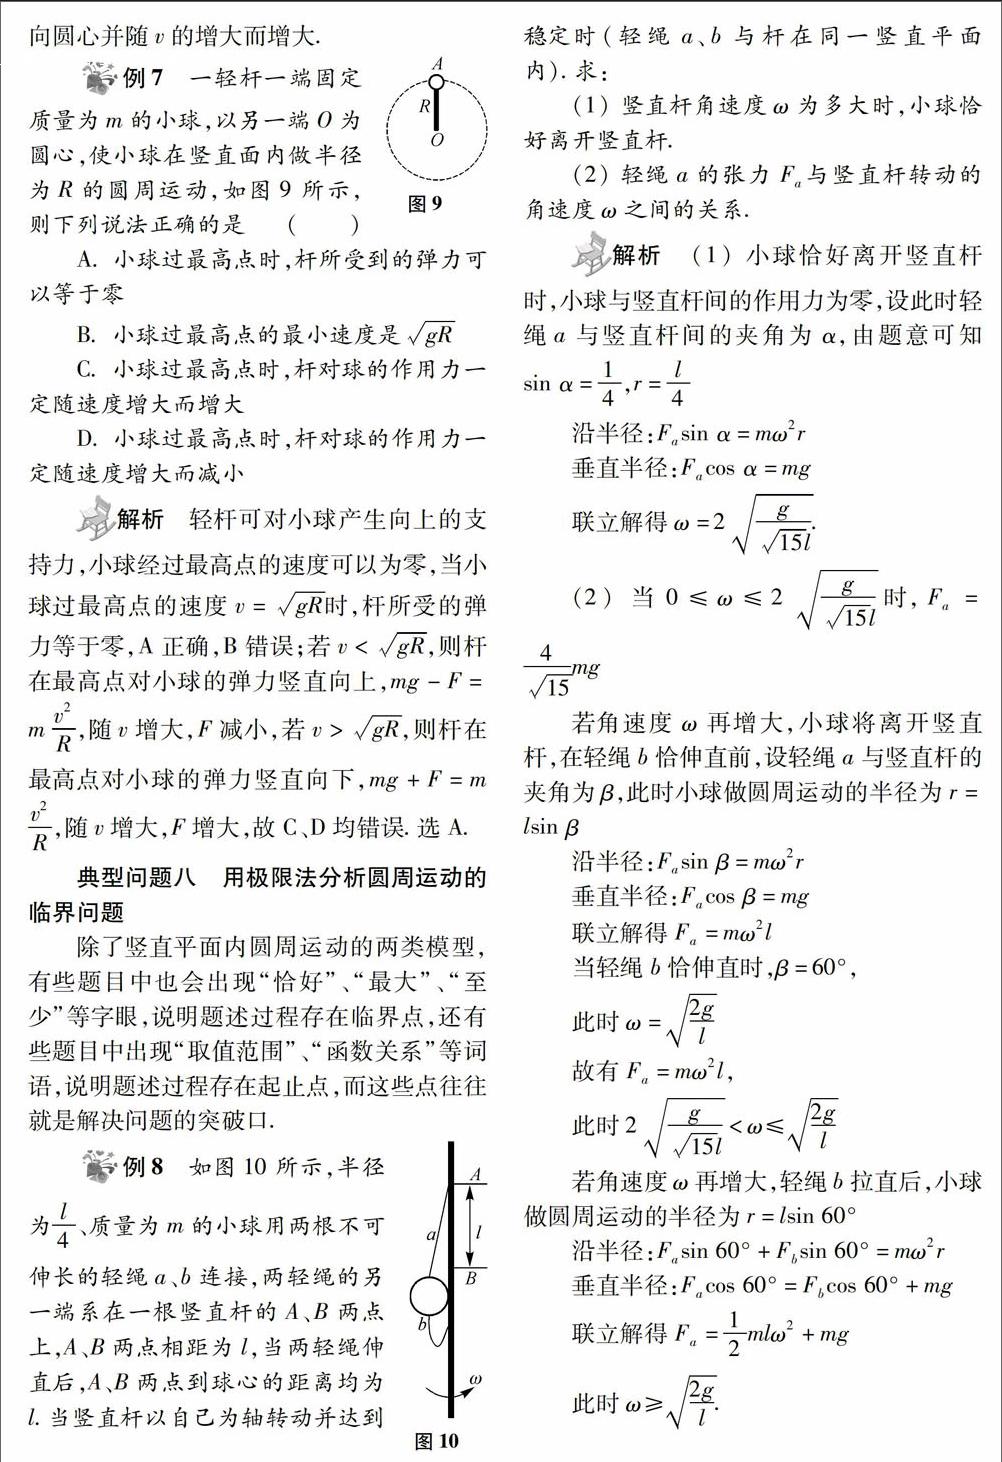 向圆心并随 v 的增大而增大.
例 7 一轻杆一端固定
质量为 m 的小球,以另一端 O 为
圆心,使小球在竖直面内做半径
为 R 的圆周运动,如图 9 所示,
则下列说法正确的是 (  )
A
R
O
图 9
A. 小球过最高点时,杆所受到的弹力可
以等于零
B. 小球过最高点的最小速度是 √gR
C. 小球过最高点时,杆对球的作用力一
定随速度增大而增大
D. 小球过最高点时,杆对球的作用力一
定随速度增大而减小
解析 轻杆可对小球产生向上的支
持力,小球经过最高点的速度可以为零,当小
球过最高点的速度 v = √gR时,杆所受的弹
力等于零,A 正确,B 错误;若 v < √gR,则杆
在最高点对小球的弹力竖直向上,mg - F =
m v²/R,随 v 增大,F 减小,若 v > √gR,则杆在
最高点对小球的弹力竖直向下,mg + F = m
v²/R,随 v 增大,F 增大,故 C、D 均错误. 选 A.
典型问题八 用极限法分析圆周运动的
临界问题
除了竖直平面内圆周运动的两类模型,
有些题目中也会出现“恰好”、“最大”、“至
少”等字眼,说明题述过程存在临界点,还有
些题目中出现“取值范围”、“函数关系”等词
语,说明题述过程存在起止点,而这些点往往
就是解决问题的突破口.
例 8 如图 10 所示,半径
为 l/4、质量为 m 的小球用两根不可
伸长的轻绳 a、b 连接,两轻绳的另
一端系在一根竖直杆的 A、B 两点
上,A、B 两点相距为 l,当两轻绳伸
直后,A、B 两点到球心的距离均为
l. 当竖直杆以自己为轴转动并达到
A
a
l
B
b
ω
图 10
稳定时(轻绳 a、b 与杆在同一竖直平面
内). 求:
(1) 竖直杆角速度 ω 为多大时,小球恰
好离开竖直杆.
(2) 轻绳 a 的张力 Fₐ与竖直杆转动的
角速度 ω 之间的关系.
解析 (1) 小球恰好离开竖直杆
时,小球与竖直杆间的作用力为零,设此时轻
绳 a 与竖直杆间的夹角为 α,由题意可知
sin α = 1/4,r = l/4
沿半径:Fₐsin α = mω²r
垂直半径:Fₐcos α = mg
联立解得 ω = 2 √(g/(√15l)).
(2) 当 0 ≤ ω ≤ 2 √(g/(√15l)) 时, Fₐ =
4/√15 mg
若角速度 ω 再增大,小球将离开竖直
杆,在轻绳 b 恰伸直前,设轻绳 a 与竖直杆的
夹角为 β,此时小球做圆周运动的半径为 r =
lsin β
沿半径:Fₐsin β = mω²r
垂直半径:Fₐcos β = mg
联立解得 Fₐ = mω²l
当轻绳 b 恰伸直时,β = 60°,
此时 ω = √(2g/l)
故有 Fₐ = mω²l,
此时 2 √(g/(√15l)) < ω ≤ √(2g/l)
若角速度 ω 再增大,轻绳 b 拉直后,小球
做圆周运动的半径为 r = lsin 60°
沿半径:Fₐsin 60° + F_b sin 60° = mω²r
垂直半径:Fₐcos 60° = F_b cos 60° + mg
联立解得 Fₐ = 1/2 mlω² + mg
此时 ω ≥ √(2g/l).